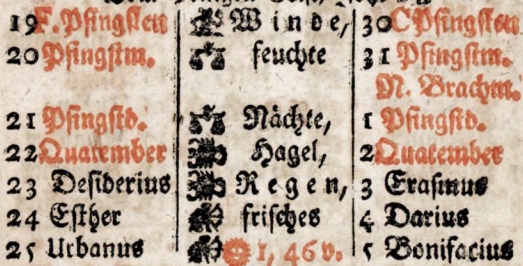 19 F. Pfingsten Winde, 30 C Pfingsten
20 Pfingstm. feuchte 31 Pfingstm.
N. Brachm.
21 Pfingstd. Nächte, 1 Pfingstd.
22 Quatember Hagel, 2 Quatember
23 Desiderius Regen, 3 Erasmus
24 Esther frisches 4 Darius
25 Urbanus 1, 46 v. 5 Bonifacius